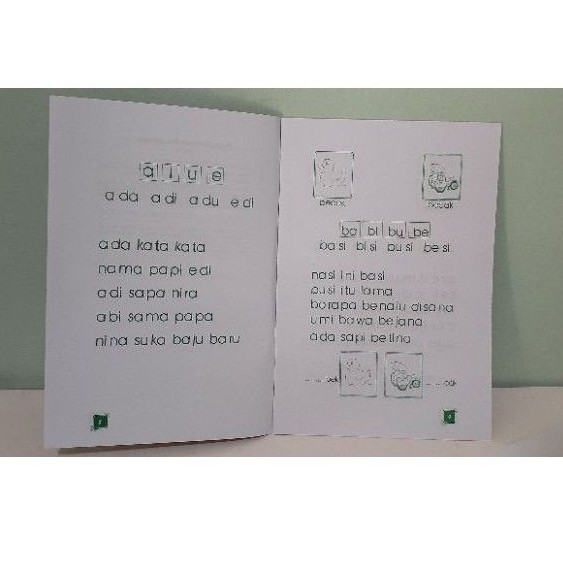 a i u e
ada adi adu edi
ada kata kata
nama papi edi
adi sapa nira
abi sama papa
nina suka baju baru
ba bi bu be
basi bisi busi besi
nasi ini basi
busi itu lama
borapa benalu disana
umi bawa bejana
ada sapi betina